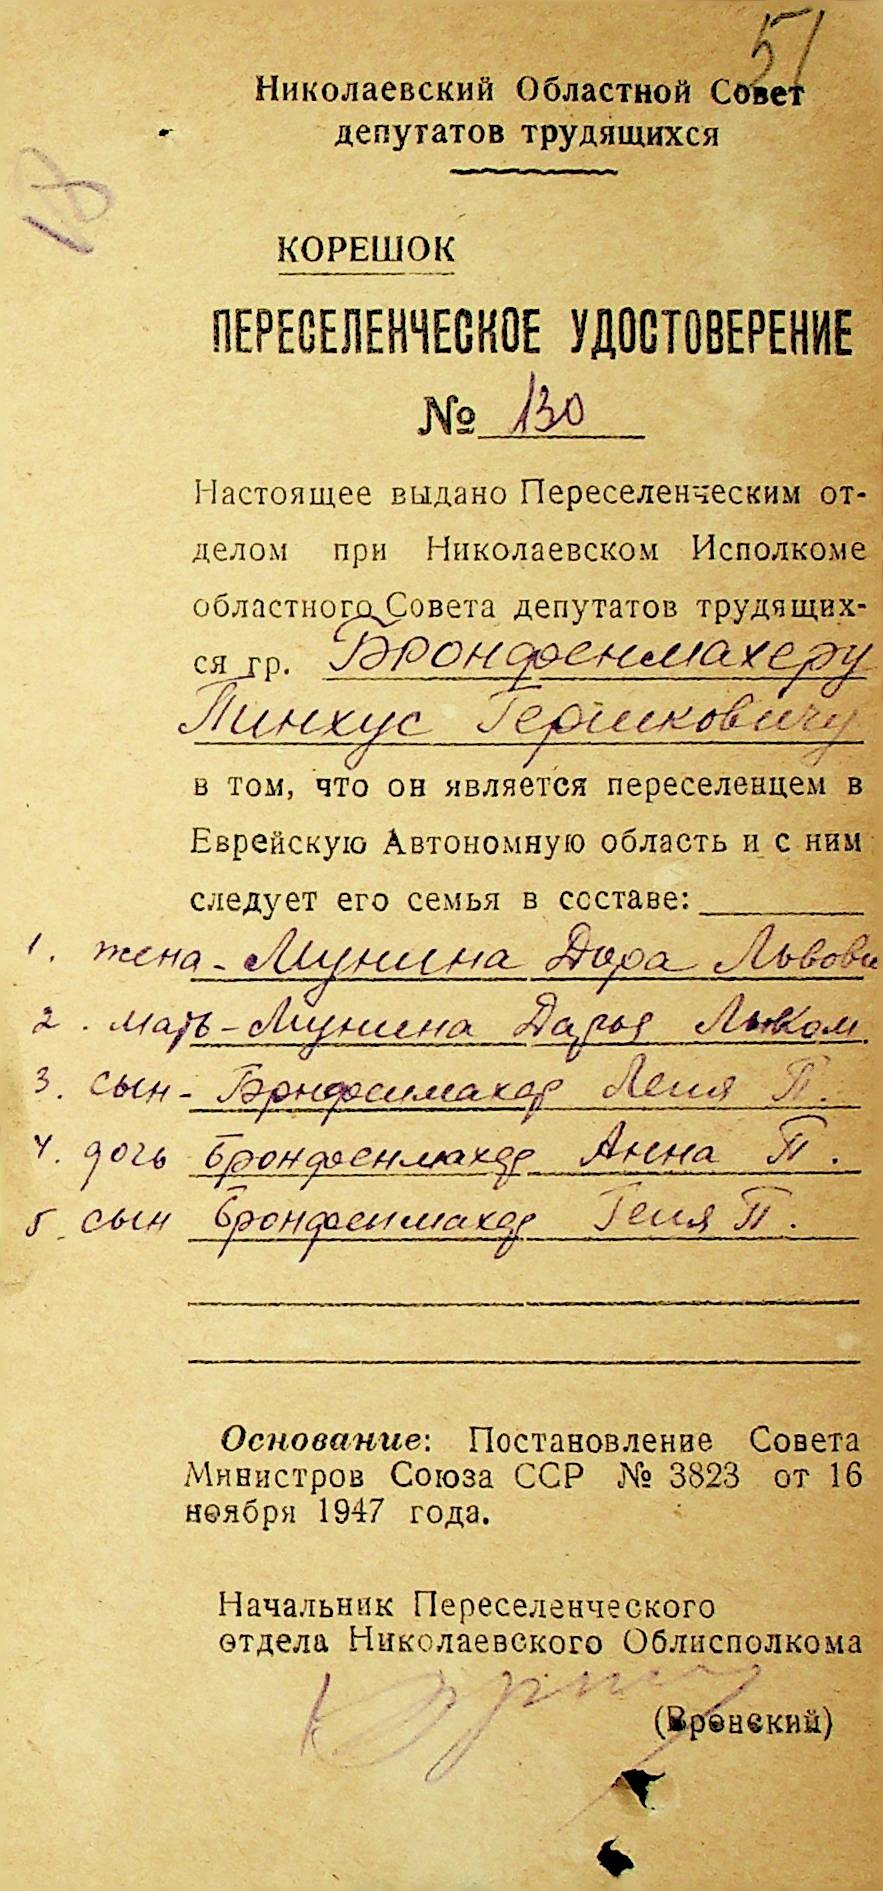 51
Николаевский Областной Совет
депутатов трудящихся
18
КОРЕШОК
ПЕРЕСЕЛЕНЧЕСКОЕ УДОСТОВЕРЕНИЕ
№ 130
Настоящее выдано Переселенческим от-
делом при Николаевском Исполкоме
областного Совета депутатов трудящих-
ся гр. Бронфенмахеру
Пинхус Гершковичу
в том, что он является переселенцем в
Еврейскую Автономную область и с ним
следует его семья в составе:
1. жена - Мунина Дора Львовн
2. мать - Мунина Дарья
3. сын - Брнфенмахер Леня П.
4. дочь Бронфенмахер Анна П.
5 сын Бронфенмахер Геня П.
Основание: Постановление Совета
Министров Союза ССР № 3823 от 16
ноября 1947 года.
Начальник Переселенческого
отдела Николаевского Облисполкома
(Вронский)